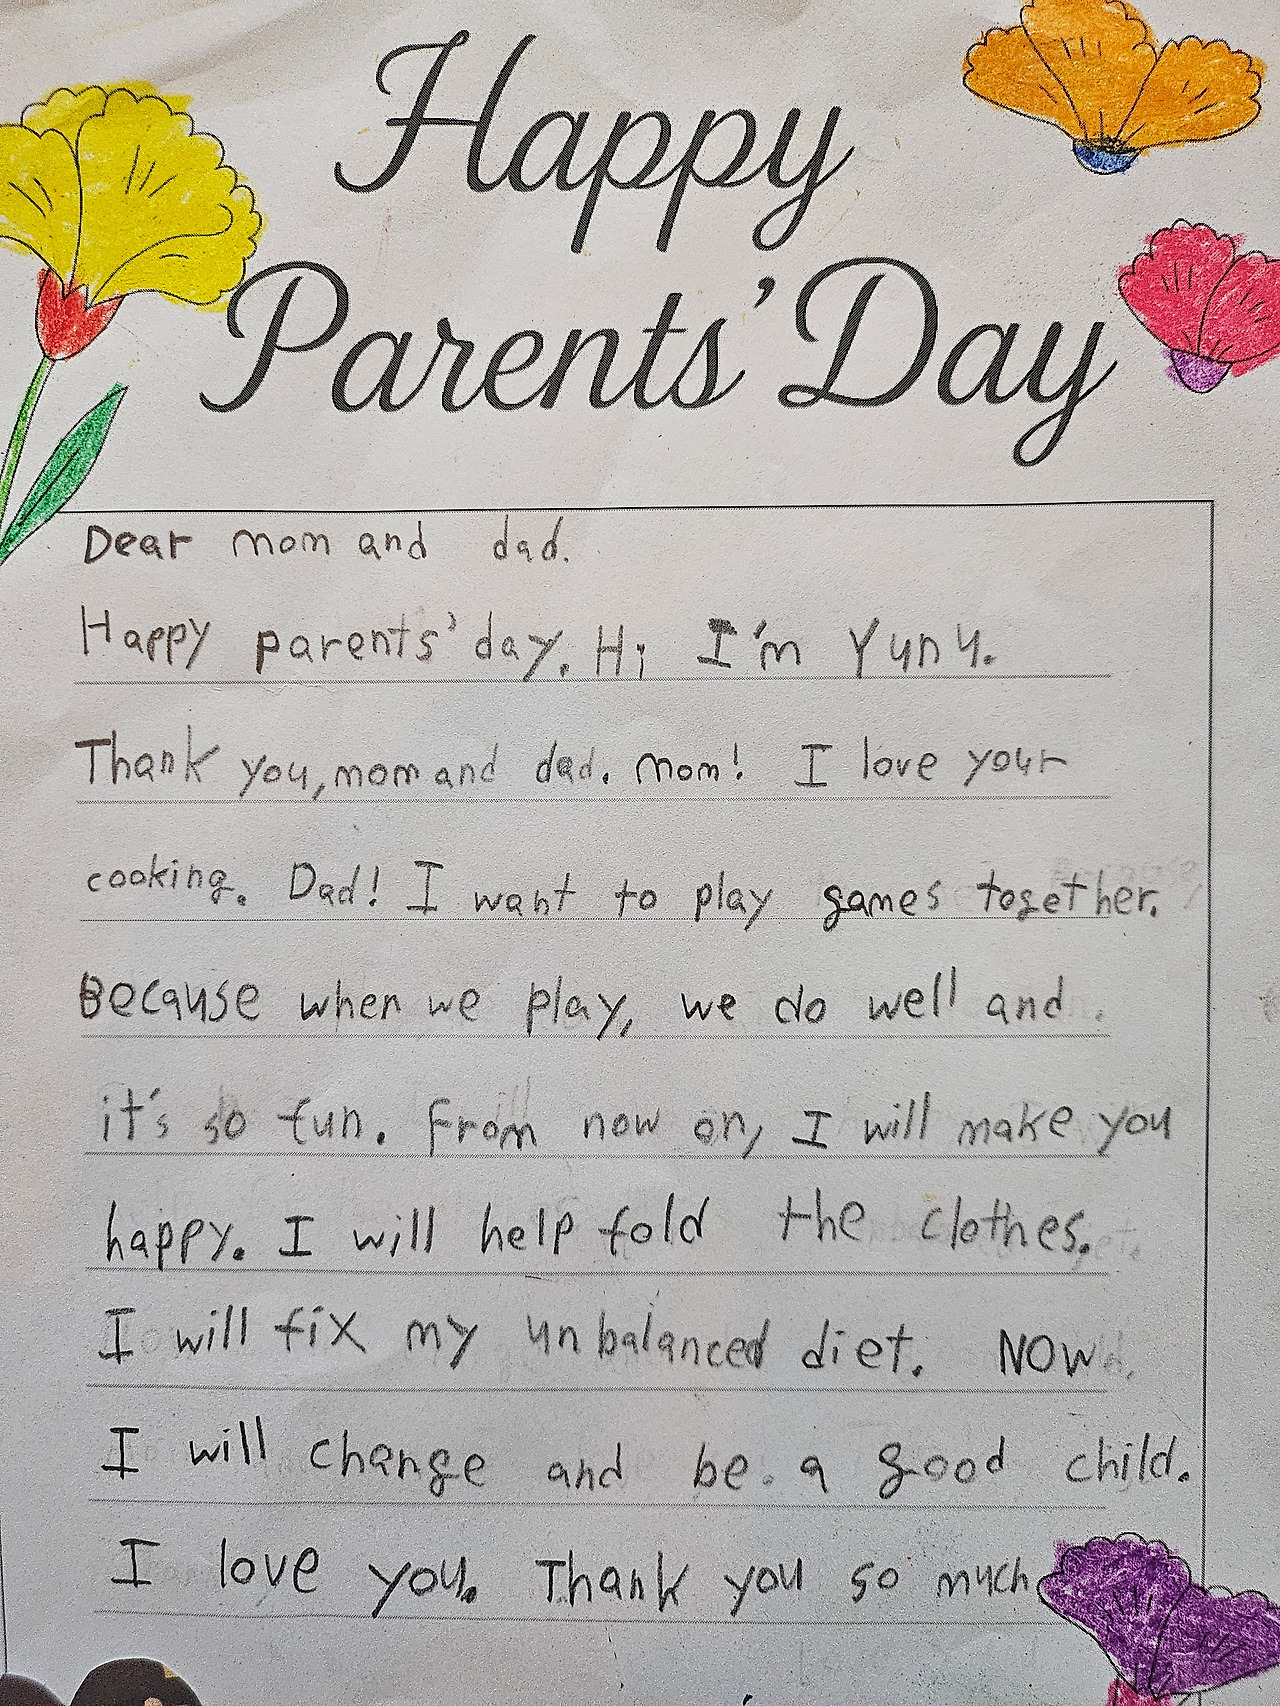 Happy
Parents' Day
Dear mom and dad.
Happy parents' day. Hi I'm Yuny.
Thank you, mom and dad. Mom! I love your
cooking. Dad! I want to play games together.
Because when we play, we do well and
it's so fun. From now on, I will make you
happy. I will help fold the clothes.
I will fix my unbalanced diet. Now
I will change and be a good child.
I love you. Thank you so much